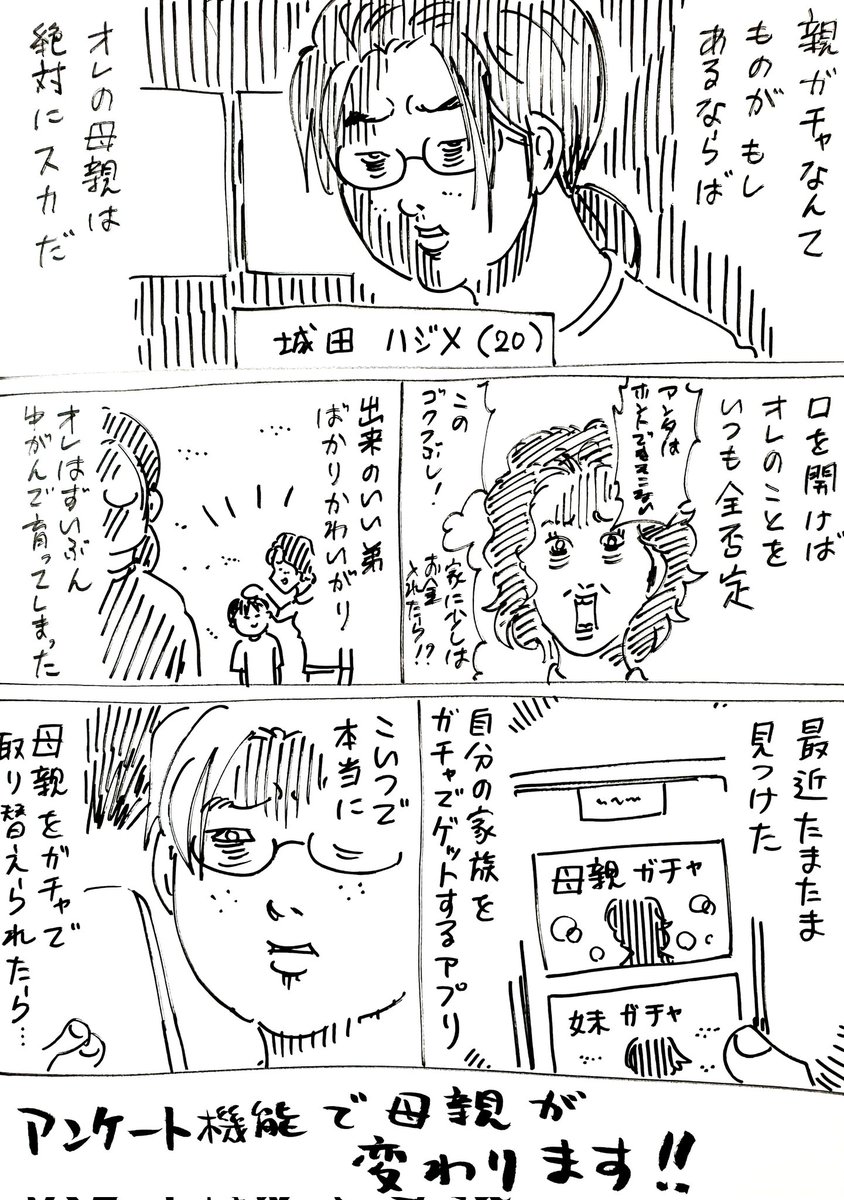 親ガチャなんて
ものが もし
あるならば
オレの母親は
絶対にスカだ
城田 ハジメ(20)
口を開けば
オレのことを
いつも全否定
アンタは
ホントできそこない
この
ゴクつぶし!
家に少しは
お金
入れたら!?
出来のいい弟
ばかりかわいがり
オレはずいぶん
ゆがんで育ってしまった
最近たまたま
見つけた
母親ガチャ
妹ガチャ
自分の家族を
ガチャでゲットするアプリ
こいつで
本当に
母親をガチャで
取り替えられたら…
アンケート機能で母親が
変わります!!